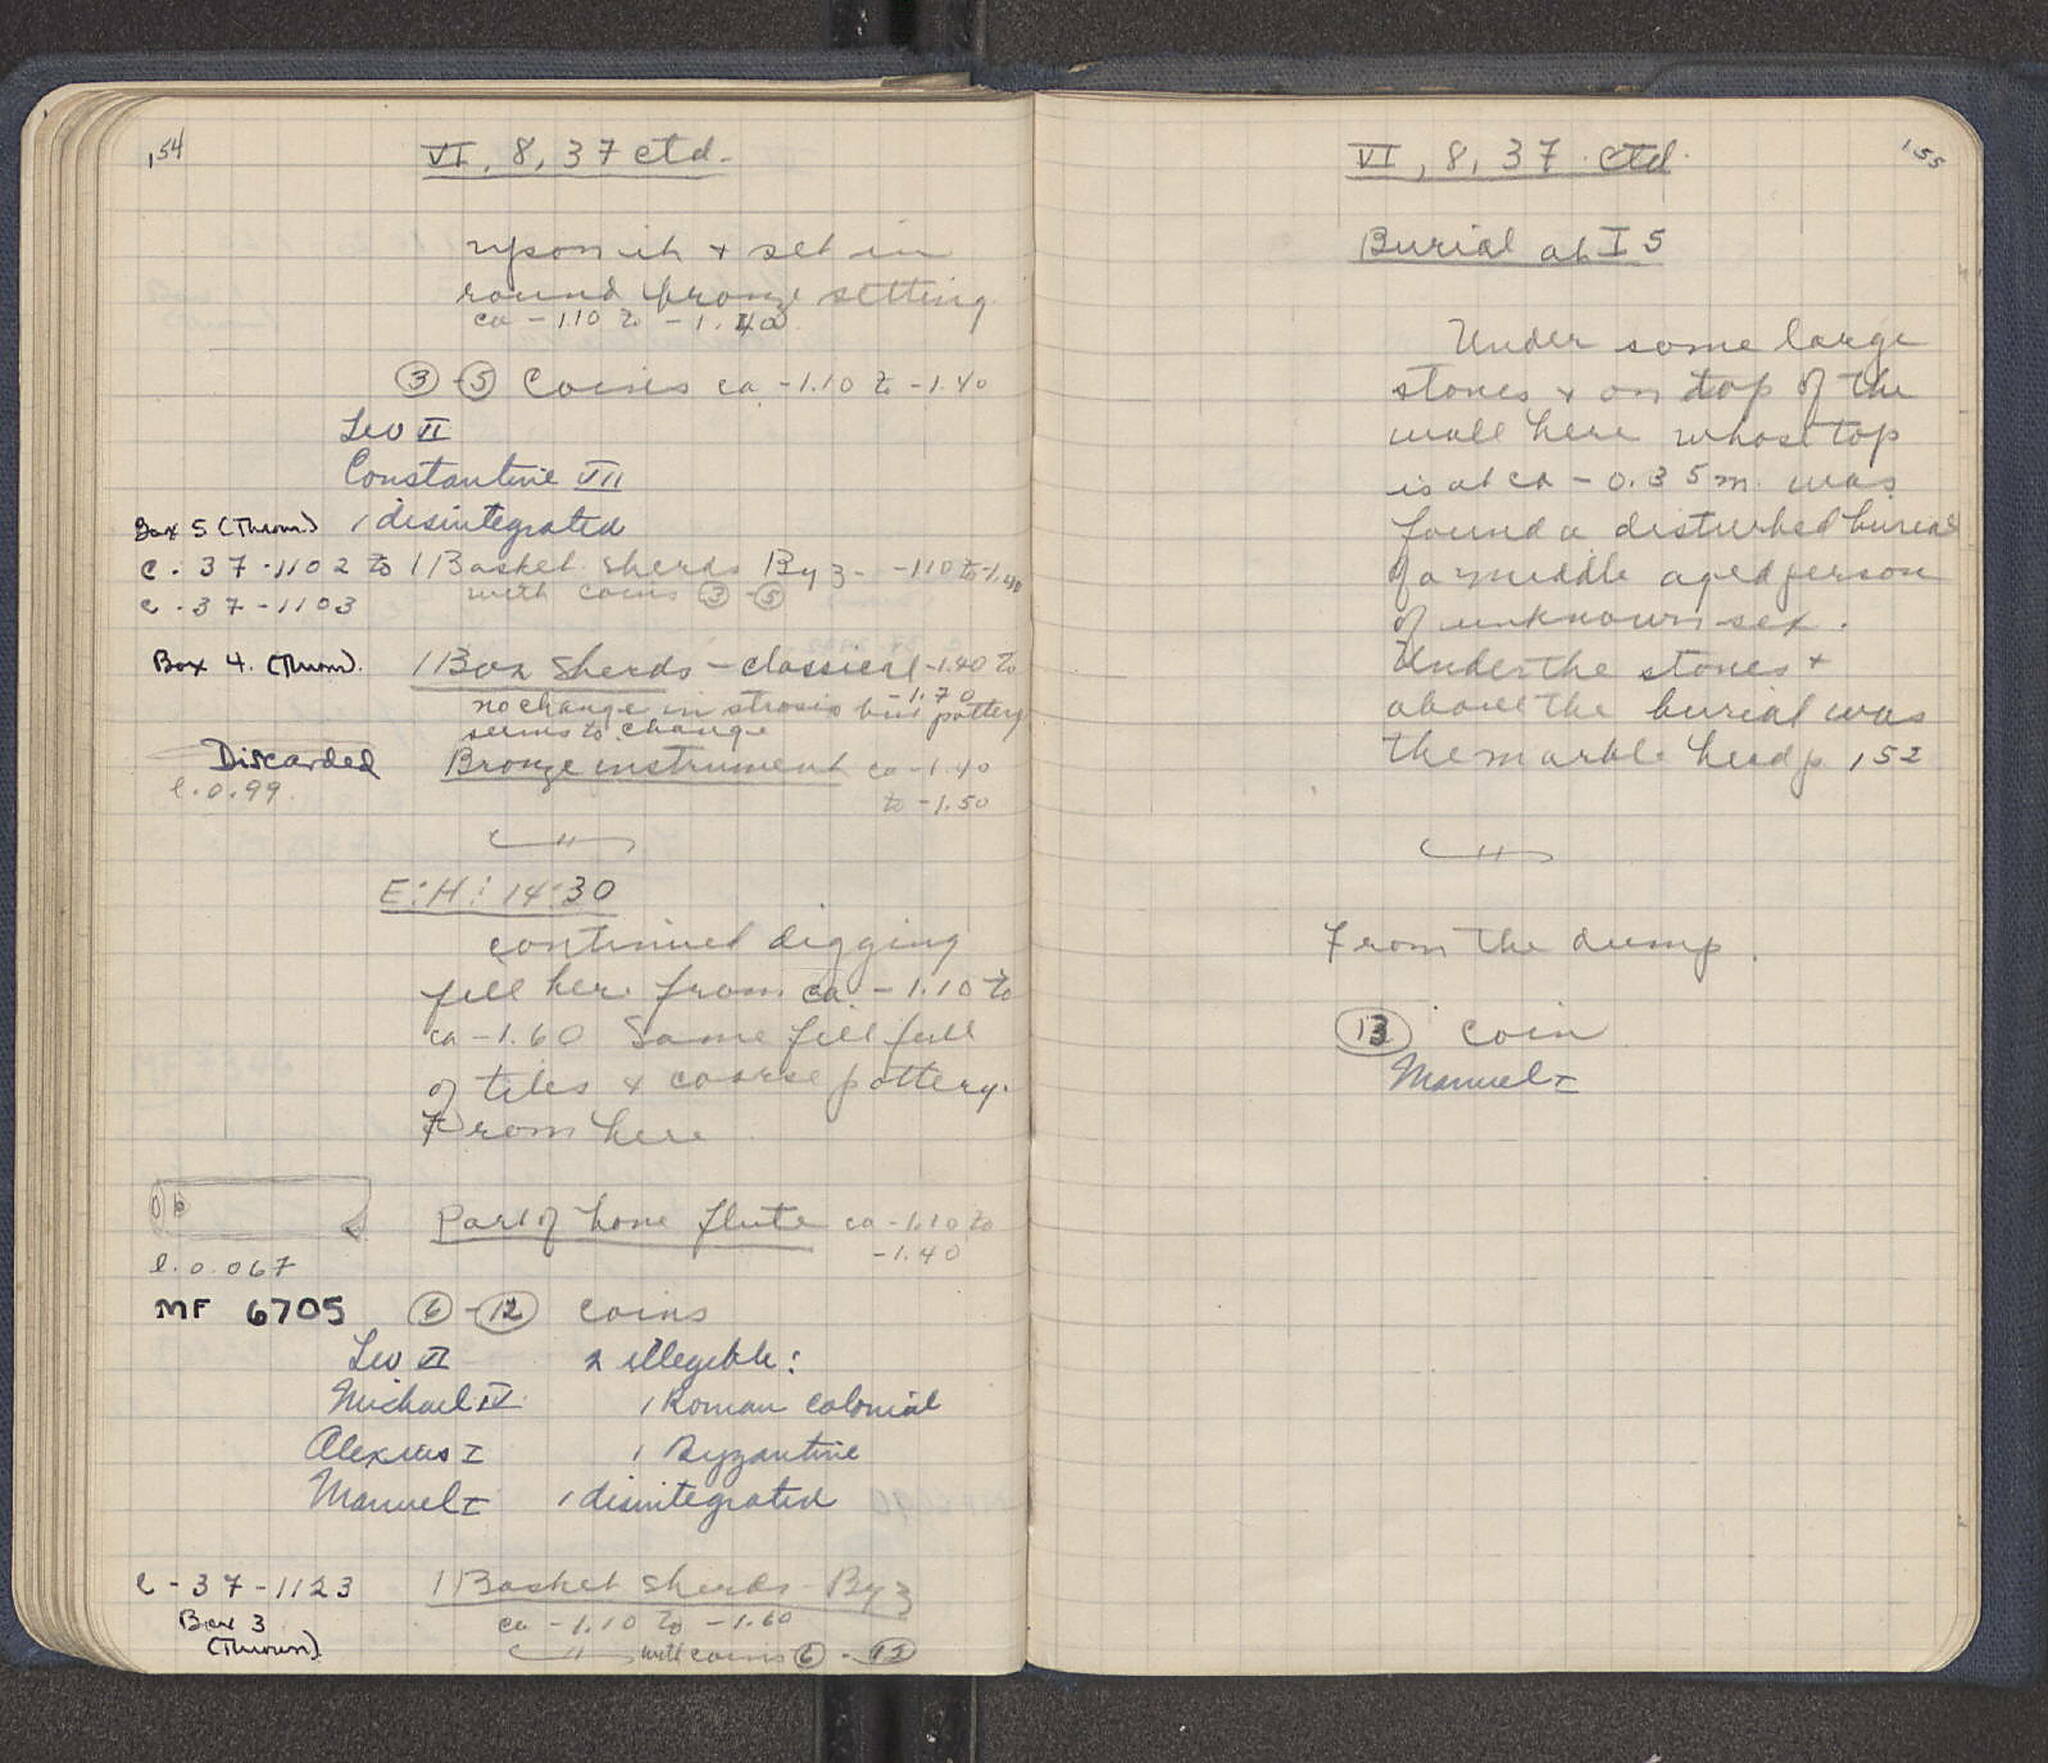 154
VI, 8, 37 ctd.
upon it + set in
round bronze setting
ca -1.10 to -1.40
③-⑤ Coins ca -1.10 to -1.40
Leo VI
Constantine VII
1 disintegrated
Box 5 (Thrown)
C-37-1102 to
C-37-1103
1 Basket sherds Byz- -1.10 to -1.40
with coins ③-⑤
Box 4. (Thrown).
1 Box Sherds - classical -1.40 to
-1.70
no change in strosis but pottery
seems to change
Discarded
l. 0.99.
Bronze instrument ca -1.40
to -1.50
E:H: 14:30
continued digging
fill here from ca. -1.10 to
ca -1.60 Same fill full
of tiles + coarse pottery.
From here
Part of bone flute ca -1.10 to
-1.40
l. 0.067
MF 6705
⑥-⑫ coins
Leo VI
2 illegible:
Michael IV
1 Roman colonial
Alexius I
1 Byzantine
Manuel I
1 disintegrated
C-37-1123
Box 3
(Thrown)
1 Basket Sherds - Byz
ca -1.10 to -1.60
with coins ⑥-⑫
155
VI, 8, 37 ctd.
Burial at I 5
Under some large
stones + on top of the
wall here whose top
is at ca -0.35 m. was
found a disturbed burial
of a middle aged person
of unknown sex.
Under the stones +
above the burial was
the marble head p. 152
From the dump.
⑬ coin
Manuel I